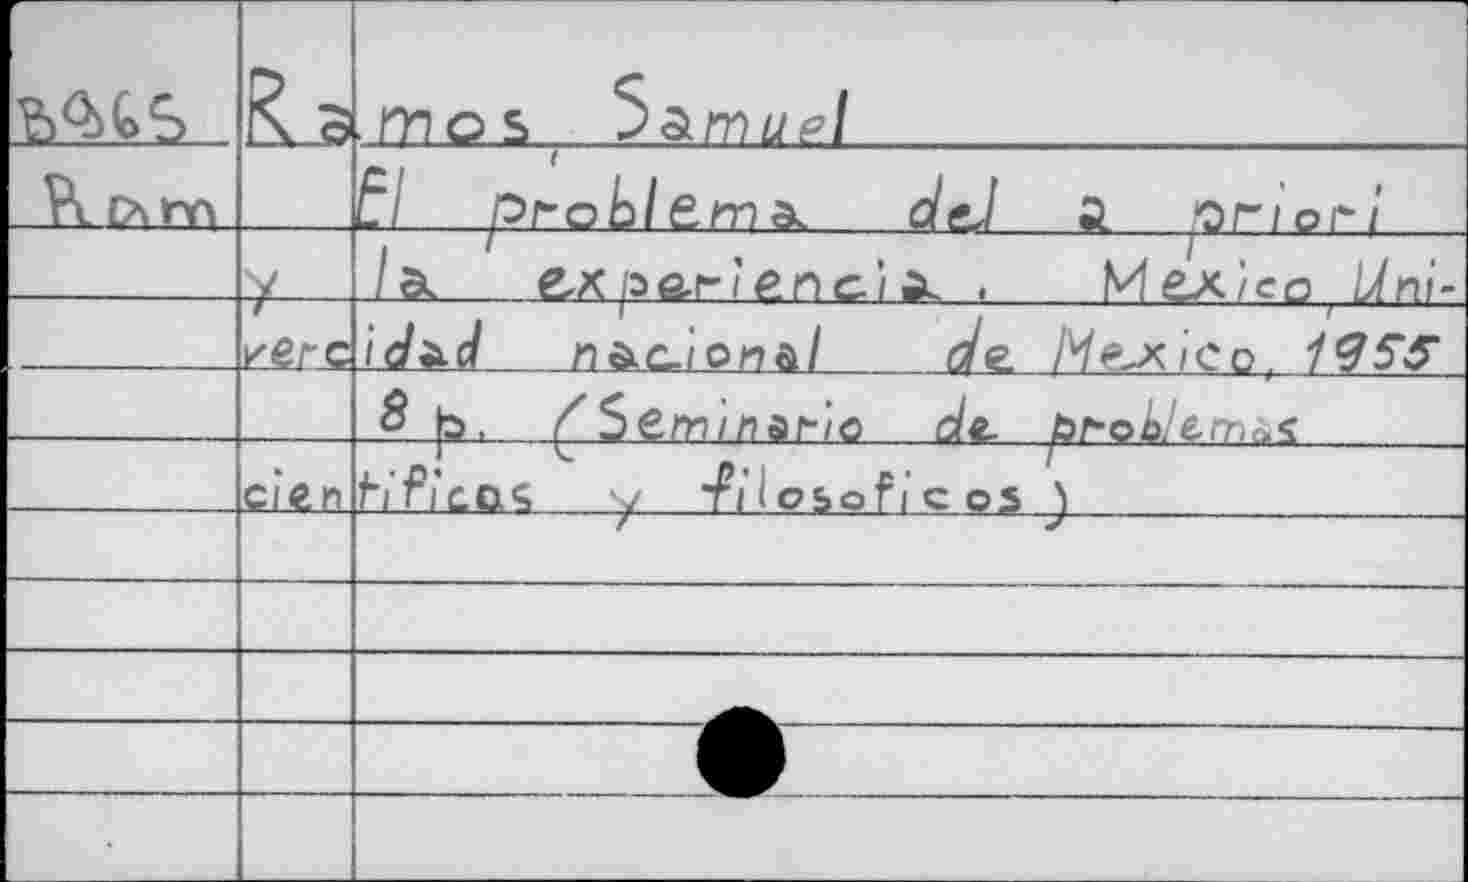 B965 Ramos, Samuel
Ram El problema del a priori
y la experiencia. Mexico, Uni-
vercidad nacional de Mexico, 1955
8 p. (Seminario de problemas
cientificos y filosoficos)